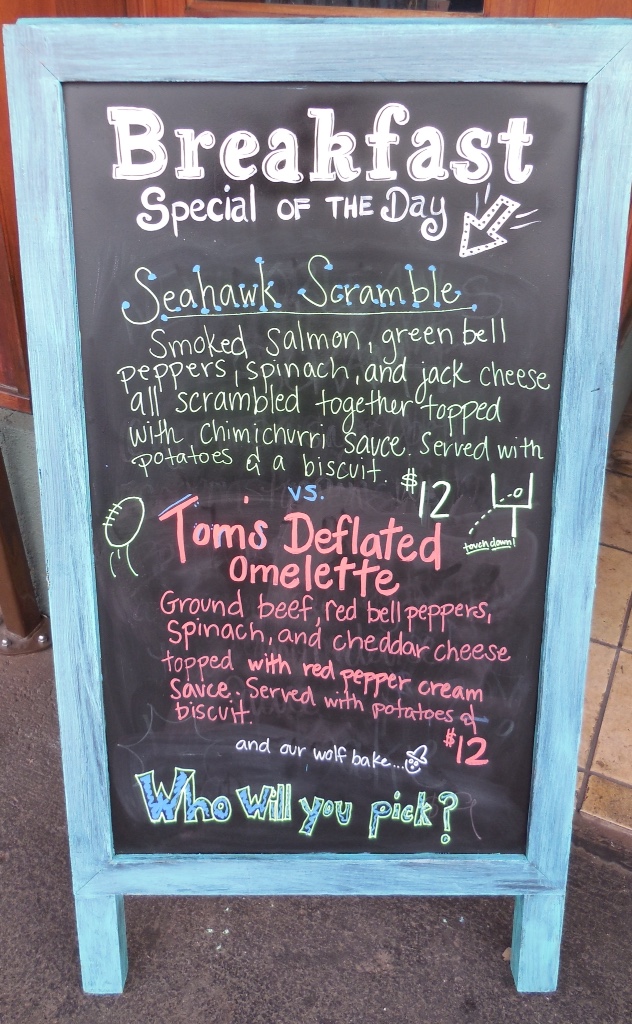 Breakfast
Special OF THE Day
Seahawk Scramble
Smoked Salmon, green bell
peppers, spinach, and jack cheese
all scrambled together topped
with chimichurri sauce. Served with
potatoes & a biscuit. $12
vs.
Tom's Deflated
omelette
touchdown!
Ground beef, red bell peppers,
Spinach, and cheddar cheese
topped with red pepper cream
sauce. Served with potatoes &
biscuit.
$12
and our wolf bake...
Who Will you pick?